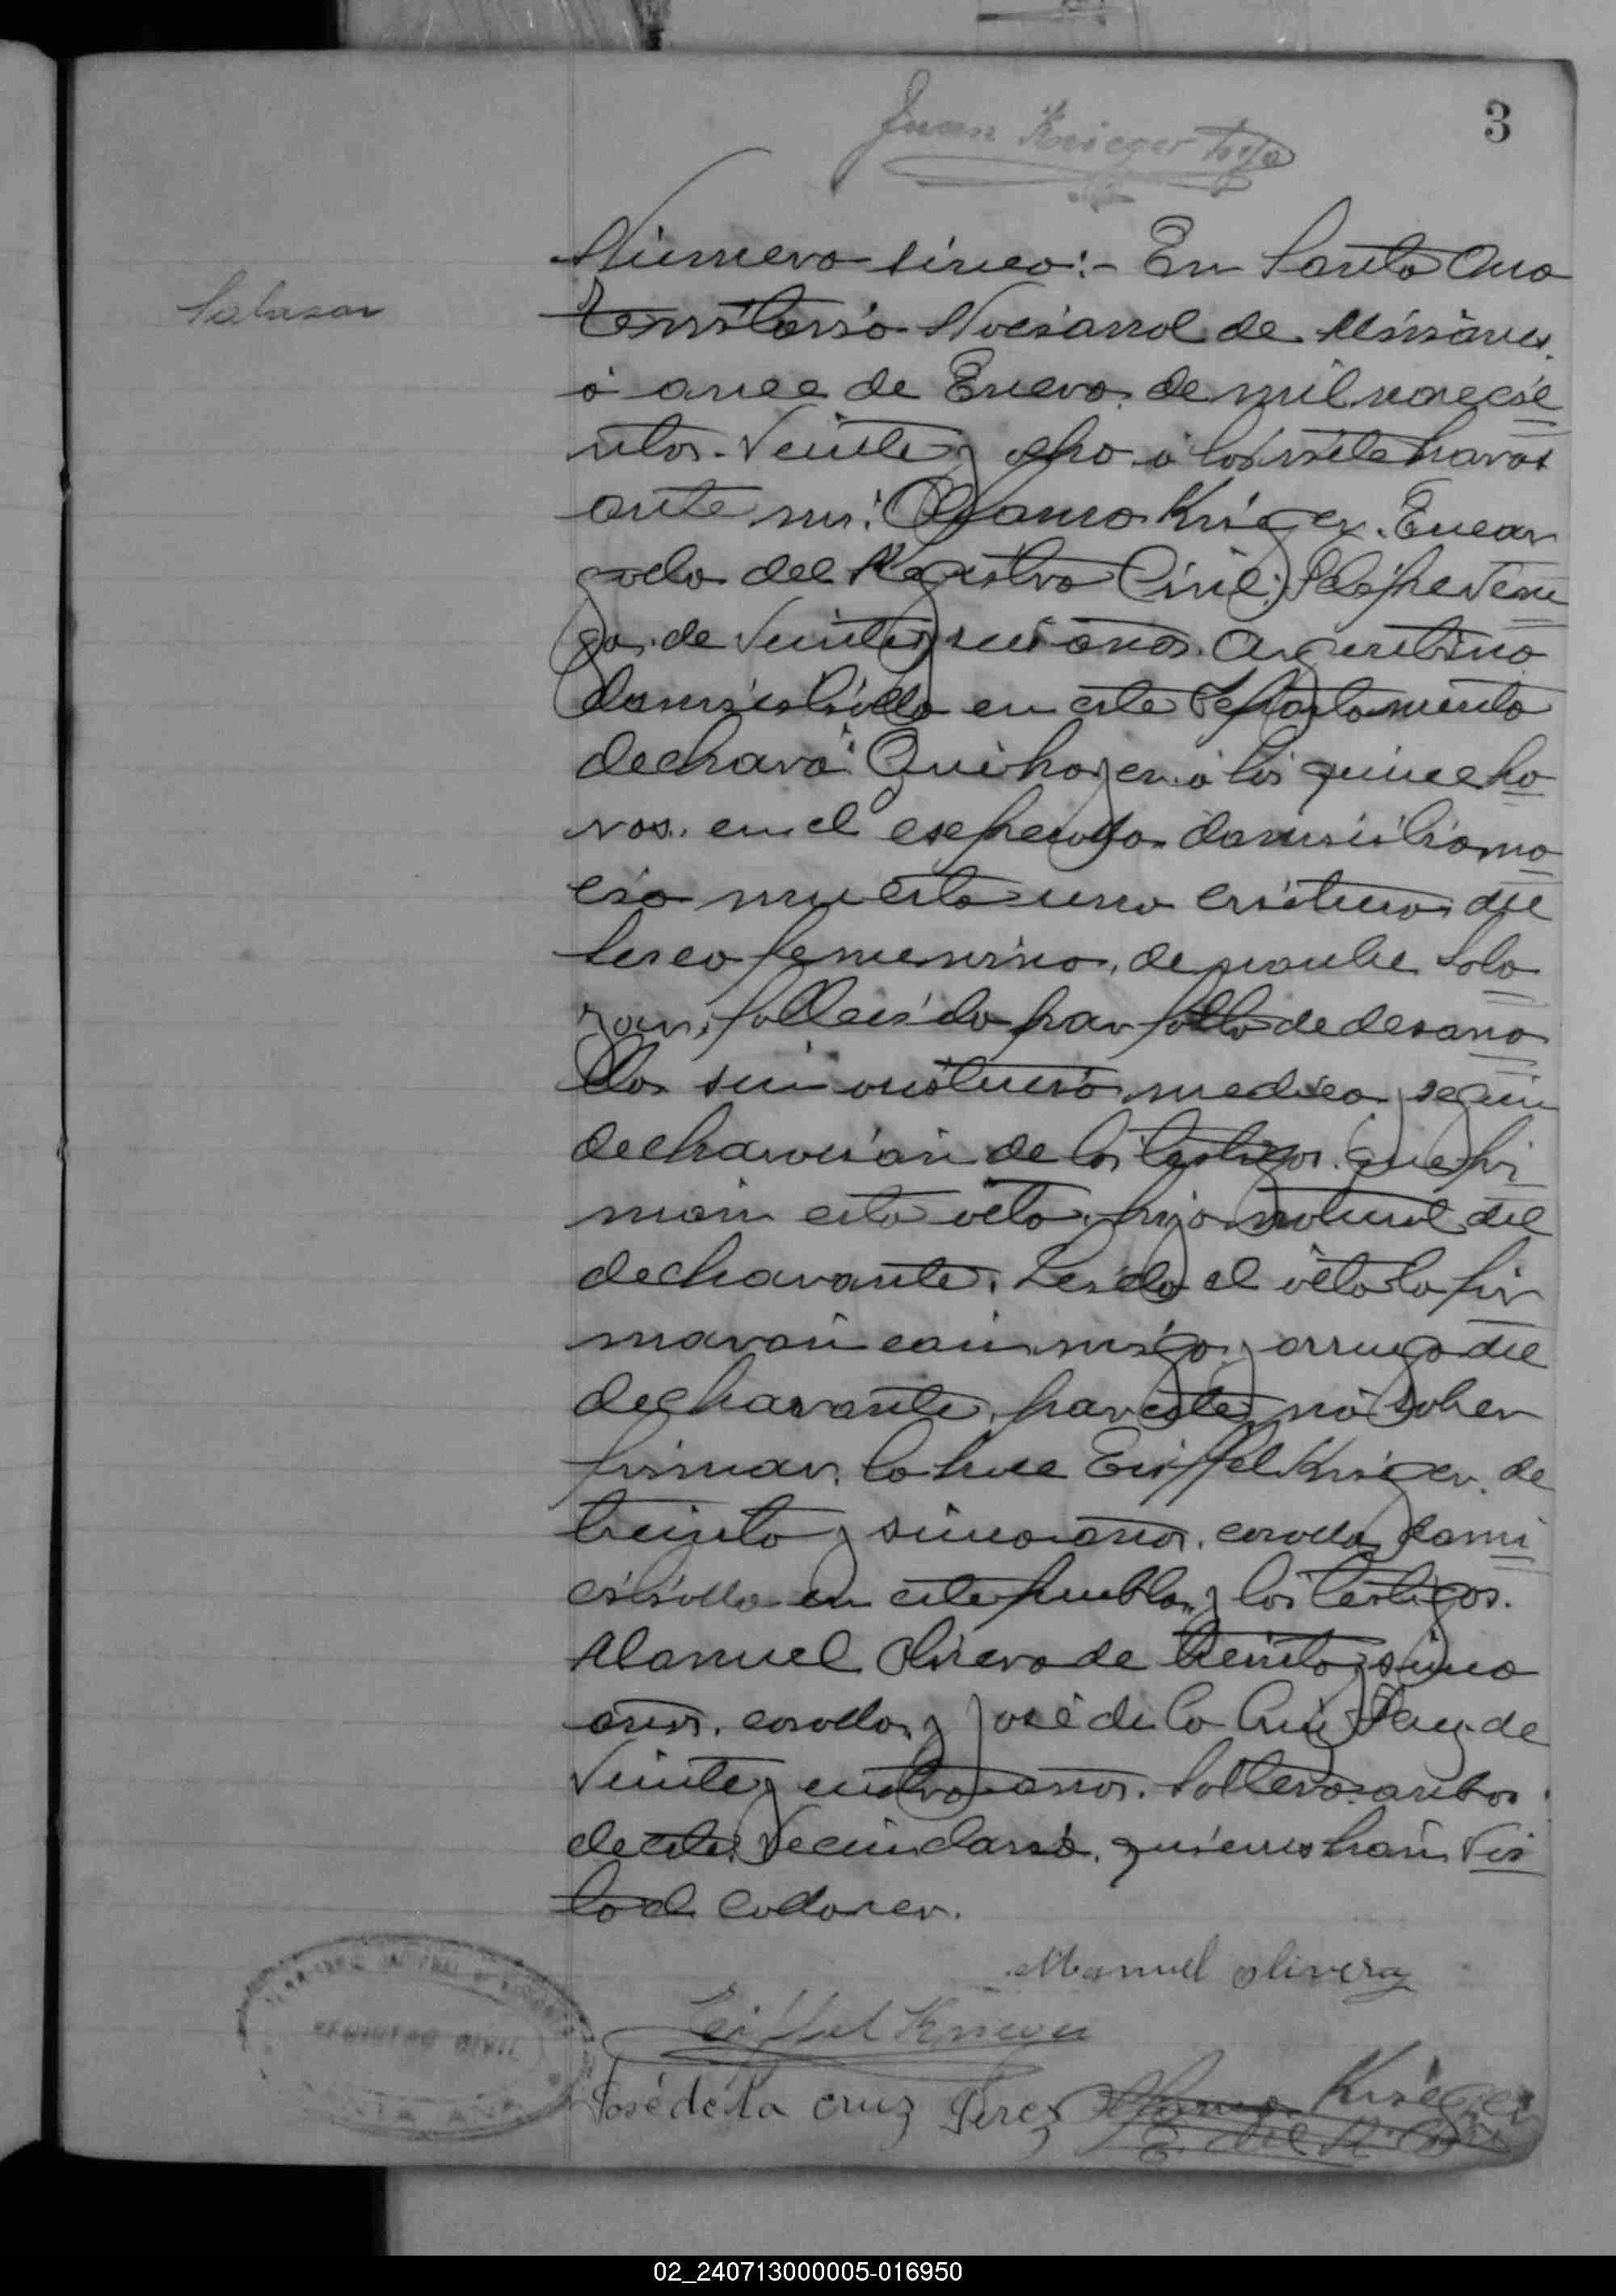 Juan Krieger hijo
3
Salasar
Número sinco:- En Santa Ana
Territorio Nacional de Misiones.
á once de Enero de mil novecie
ntos. Veinte y ocho á las siete horas
ante mi: Alfonso Kriéger. Encar
gado del Registro Civil;
ga. de Veinte y seis años. Argentino
domiciliado en este Departamento
declaró: Que hoy en á las quince ho
ras. en el espresado domicilio na
cio muerta una criatura del
secso femenino, de nombre Sala
zar, fallecido por falta de desarro
llo sin asistencia medica segun
declaración de los testigos. que fir
man esta acta, hija natural del
declarante. Leida el acta la fir
maron conmigo, y arruego del
declarante, por este no saber
firmar. lo hace Eiffel Kriéger. de
treinta y sinco años. casado, domi
ciliado en este pueblo, y los testigos.
Manuel Olivera de treinta y sinco
años. casado, y José de la Cruz Perez de
Veinte y cuatro años. Soltero. ambos
de este Vecindario. quienes han Vis
to el cadaver.
Manuel Olivera
Eiffel Krieger
José de la cruz Perez Alfonso Kriéger
E. del R. Civil
REGISTRO CIVIL
SANTA ANA
02_240713000005-016950